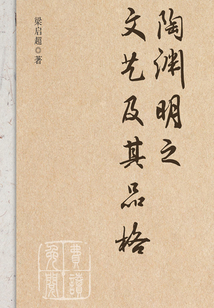 陶渊明之
文艺及其品格
梁启超◎著